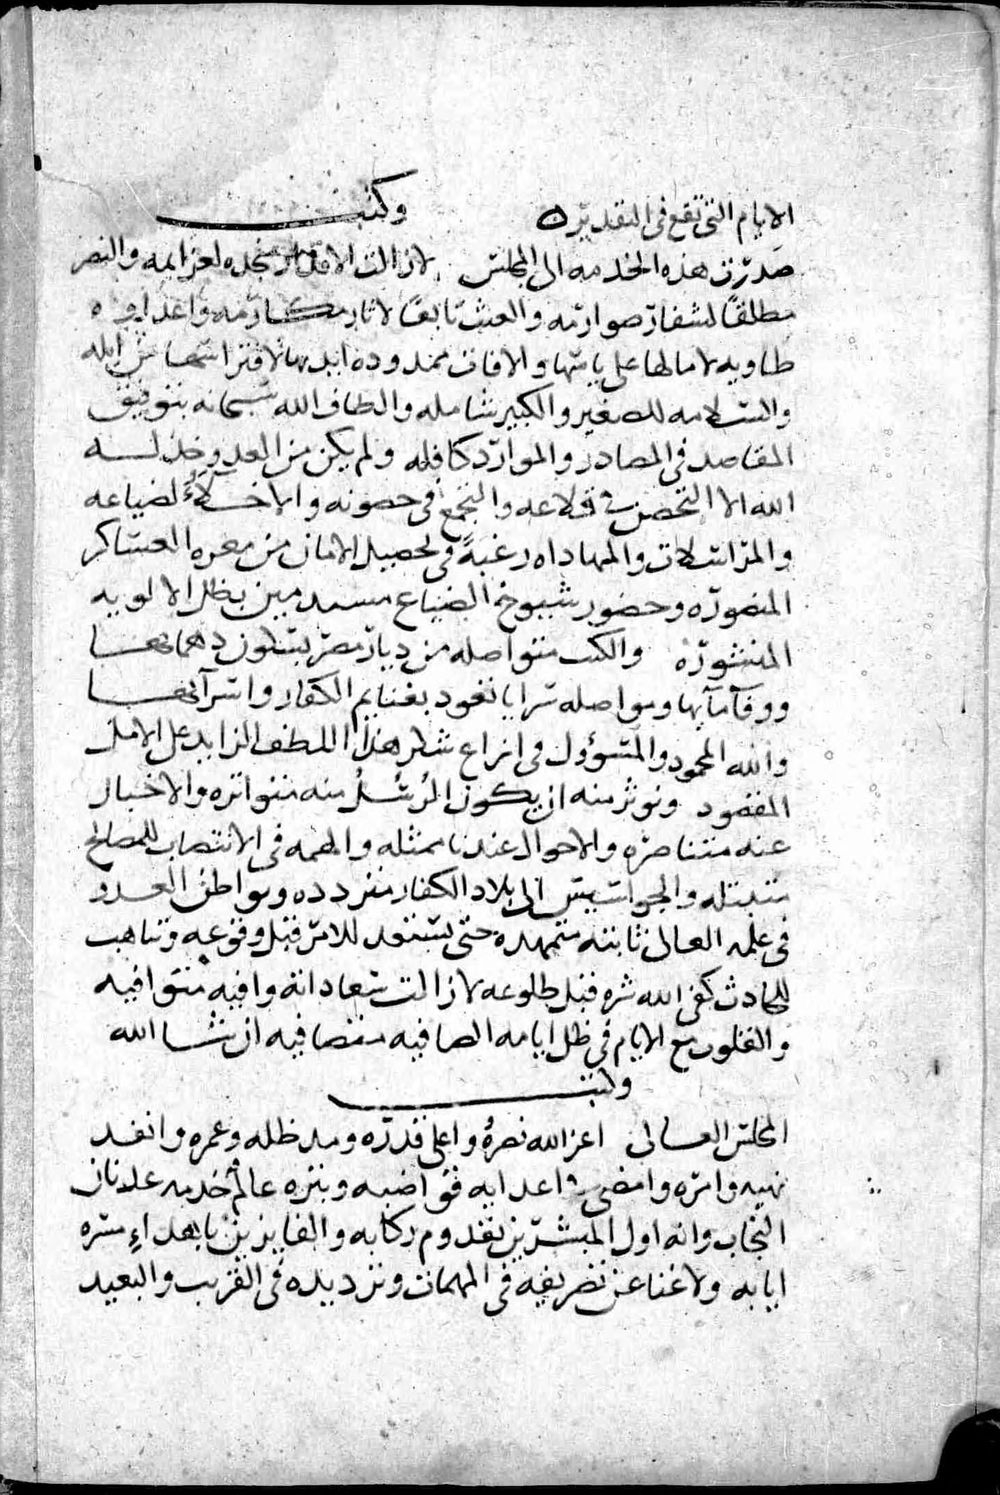 الايام التي تقع في التقدير ه وكتب
صدرت هذه الخدمه الى المجلس لازالت الاقدار منجده لعزايمه والنصر
مطلقا لشفار صوارمه والعيث تابعا لاثار مكارمه واعداوه
طاويه لامالها على ياسها والافاق ممدوده ايديها لافتراسها
والسلامه للصغير والكبير شامله والطاف الله سبحانه بتوفيق
المقاصد في المصادر والموارد كافله ولم يكن من العدو خذله
الله الا التحصن في قلاعه والتجمع في حصونه والاخلاء لضياعه
والمراسلات والمهاداه رغبة في تحصيل الامان من معره العساكر
المنصوره وحضور شيوخ الضياع مستذمين بظل الالويه
المنشوره والكتب متواصله من ديار مصر بسكون دهمائها
ووفآمآيها ومواصله سرايا تعود بغنايم الكفار واسرآئها
والله المحمود والمسؤول في ايزاع شكر هذا اللطف الزايد على الامل
المقصود ونوثر منه ان يكون الرسل منه متواتره والاخبار
عنه متناصره والاحوال عندنا ممثله والهمه في الانتصاب للمصالح
متبتله والجواسيس الى بلاد الكفار متردده ومواطن العدو
في علمه العالي ثابته متمهده حتى يستعد للامر قبل وقوعه ويتاهب
للحادث كفى الله شره قبل طلوعه لازالت سعاداته وافيه متوافيه
والقلوب مع الايام في ظل ايامه الصافيه متصافيه ان شا الله
وكتب
المجلس العالي اعز الله نصره واعلى قدره ومد ظله وعمره وانفذ
نهيه وامره وامضى في اعدايه قواضبه وبتره عالم خدمه علانان
النجاب وانه اول المبشرين بقدوم ركابه والفايزين باهداء مسره
ايابه ولا غنا عن تصريفه في المهمات وترديده في القريب والبعيد